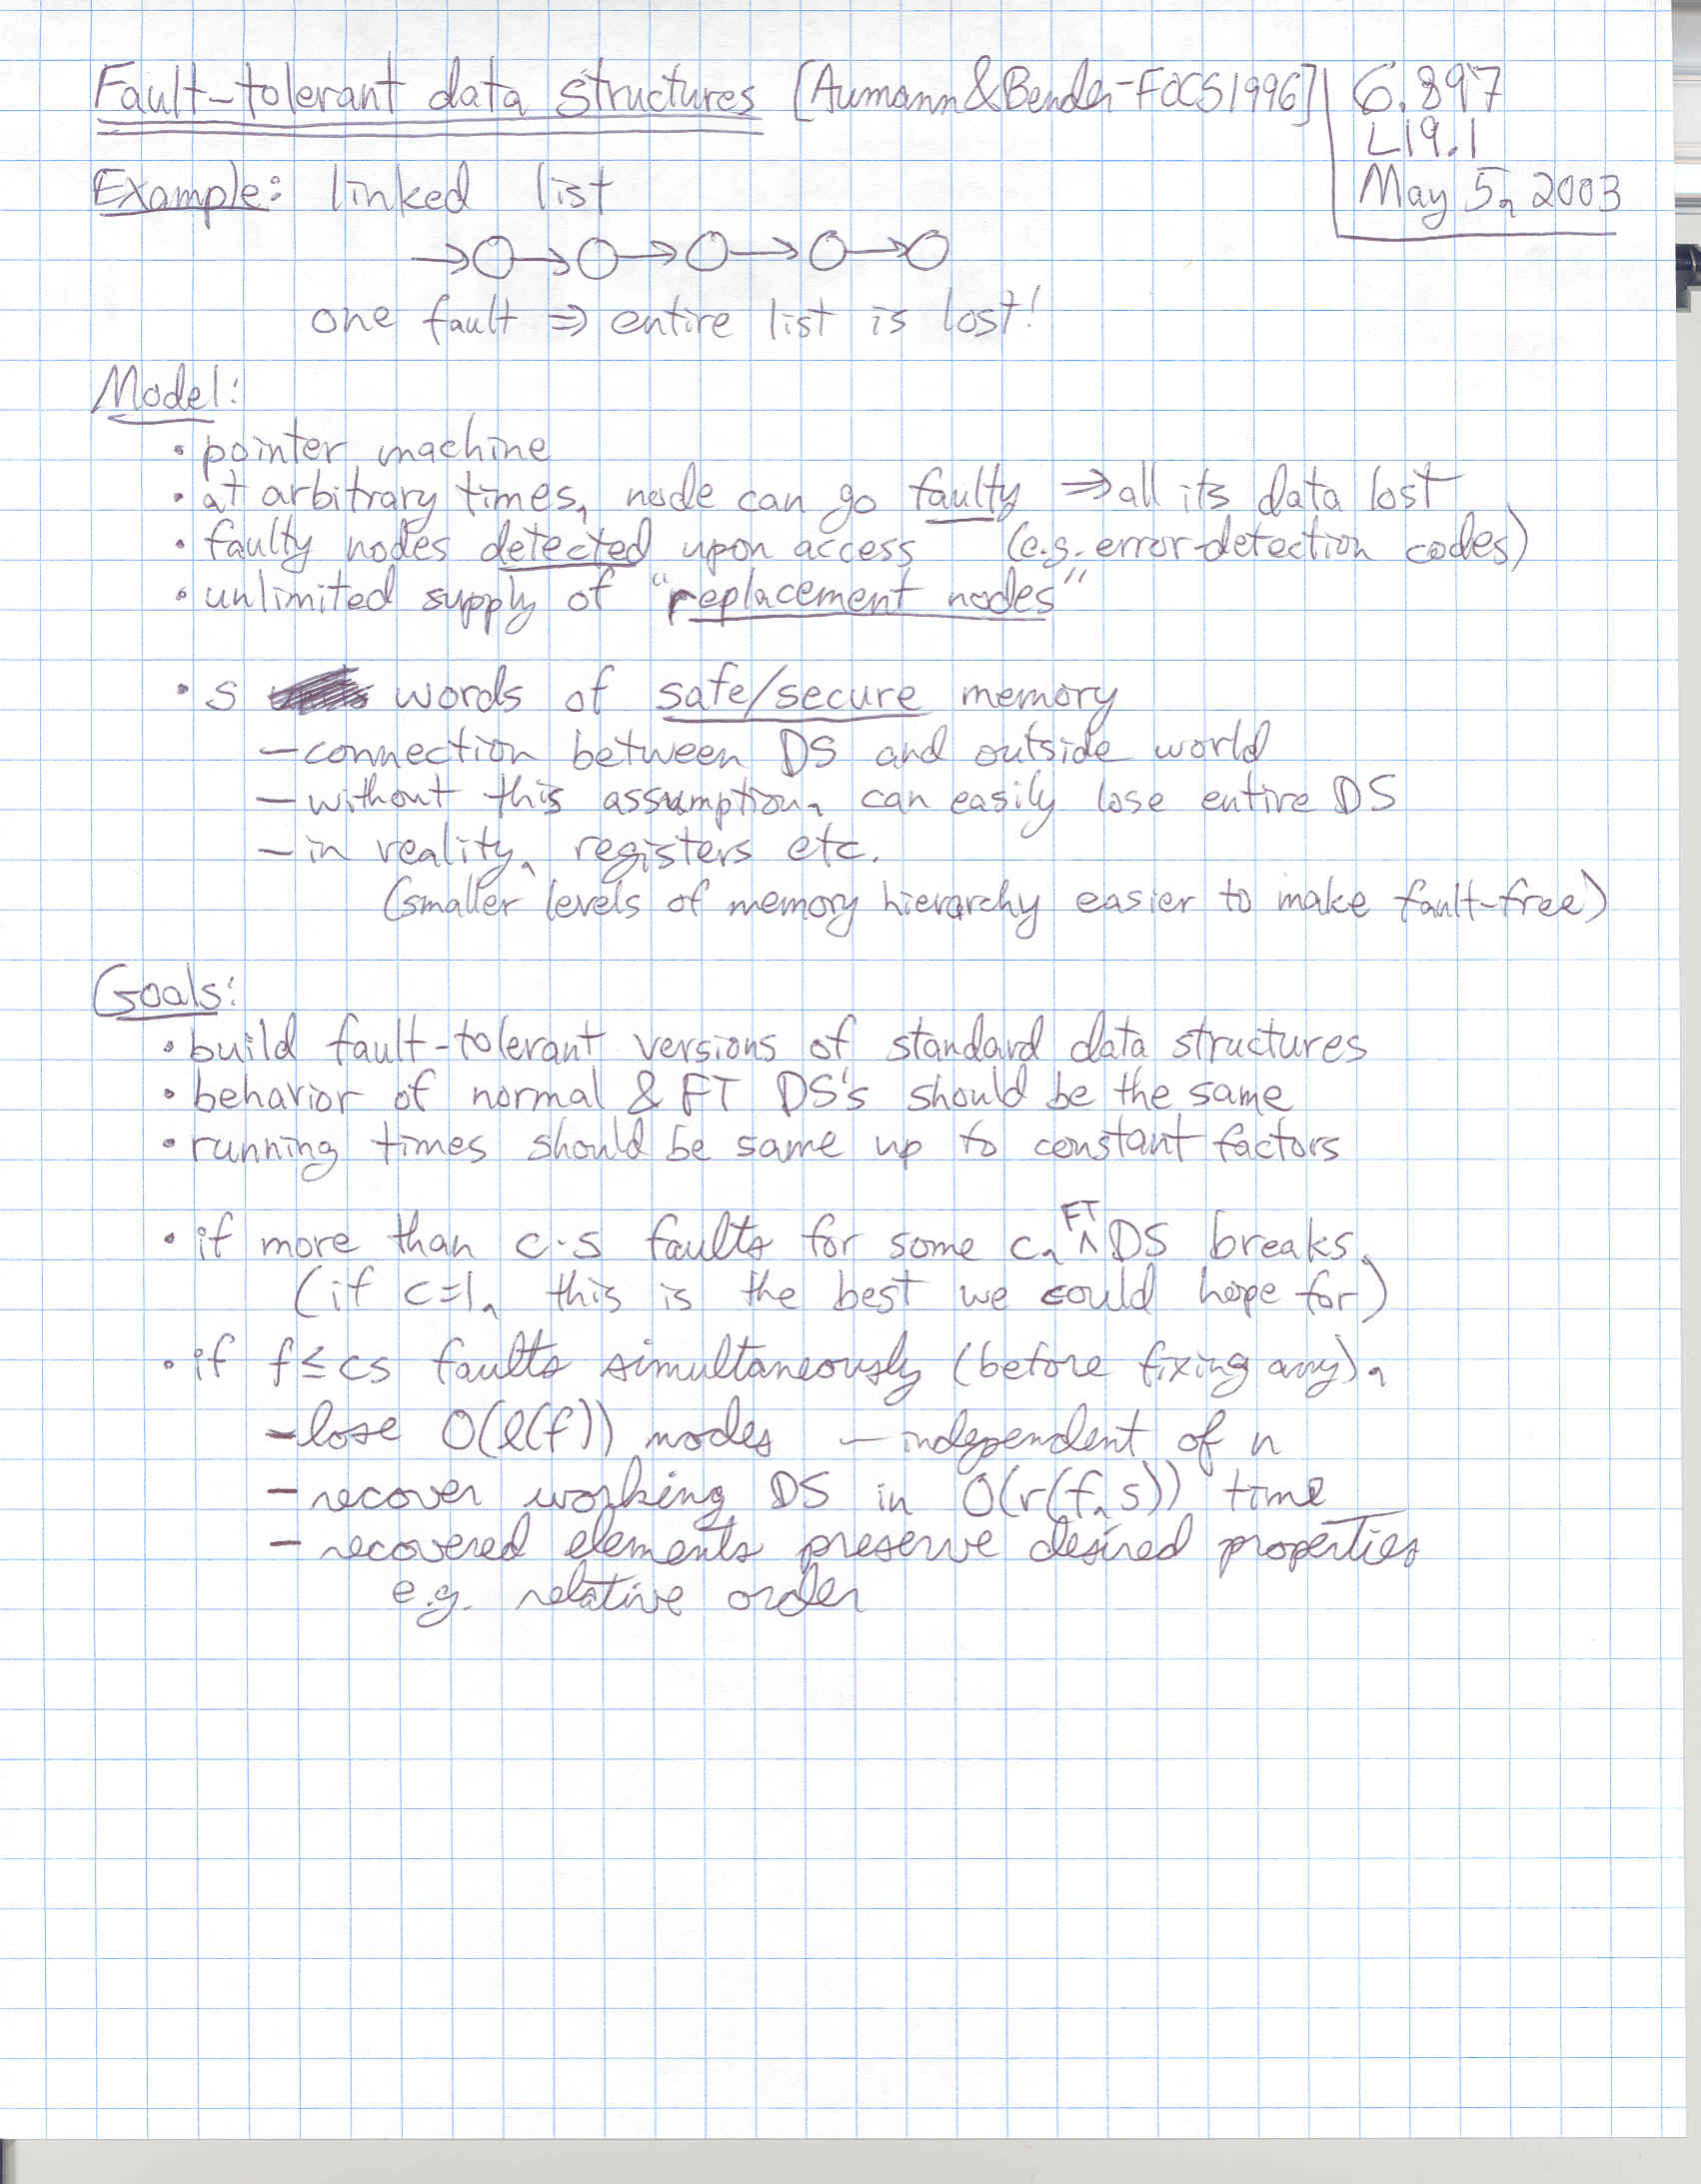 Fault-tolerant data structures [Aumann & Bender-FOCS 1996]
6.897
L19.1
May 5, 2003
Example: linked list
one fault ⇒ entire list is lost!
Model:
• pointer machine
• at arbitrary times, node can go faulty ⇒ all its data lost
• faulty nodes detected upon access (e.g. error-detection codes)
• unlimited supply of "replacement nodes"
• s words of safe/secure memory
- connection between DS and outside world
- without this assumption, can easily lose entire DS
- in reality, registers etc.
(smaller levels of memory hierarchy easier to make fault-free)
Goals:
• build fault-tolerant versions of standard data structures
• behavior of normal & FT DS's should be the same
• running times should be same up to constant factors
• if more than c·s faults for some c, FT DS breaks.
(if c=1, this is the best we could hope for)
• if f ≤ cs faults simultaneously (before fixing any),
- lose O(l(f)) nodes - independent of n
- recover working DS in O(r(f,s)) time
- recovered elements preserve desired properties
e.g. relative order